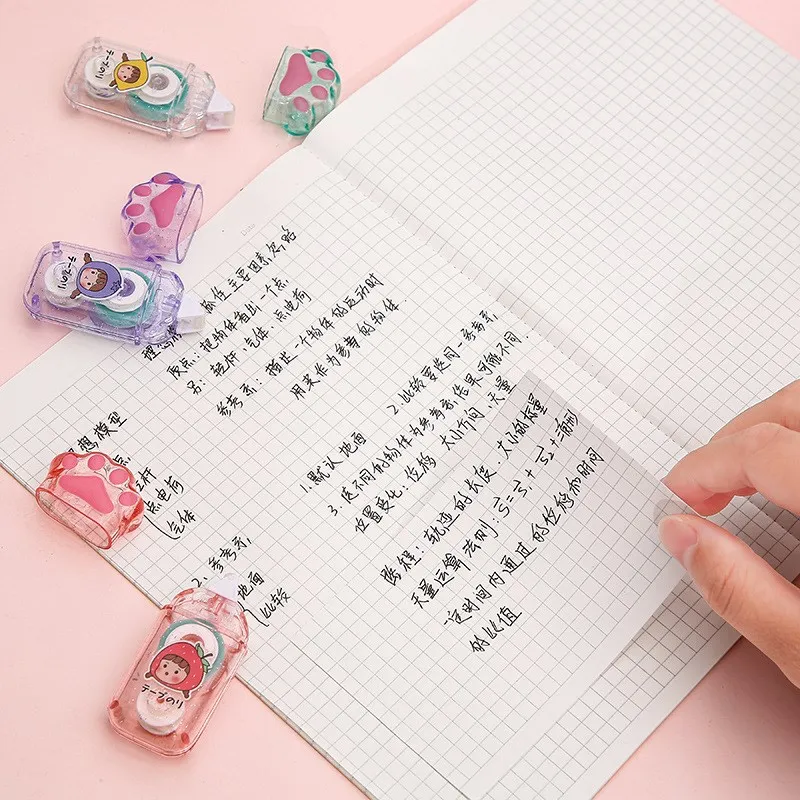 テープのり
テープのり
Date
抓住主要因素,忽略
质点:把物体看出一个点
另:轻杆、气体、点电荷
参考系:描述一个物体的运动时
用来作为参考的物体
1.默认地面 2.比较要选同一参考系,
3.选不同的物体为参考系,结果可能不同.
位置变化:位移 大小方向、矢量
路程:轨迹的长度、大小的标量
矢量运算法则:
一定时间内通过的位移和时间
的比值
想模型
点电荷
气体
2、参考系,
地面
比较
テープのり